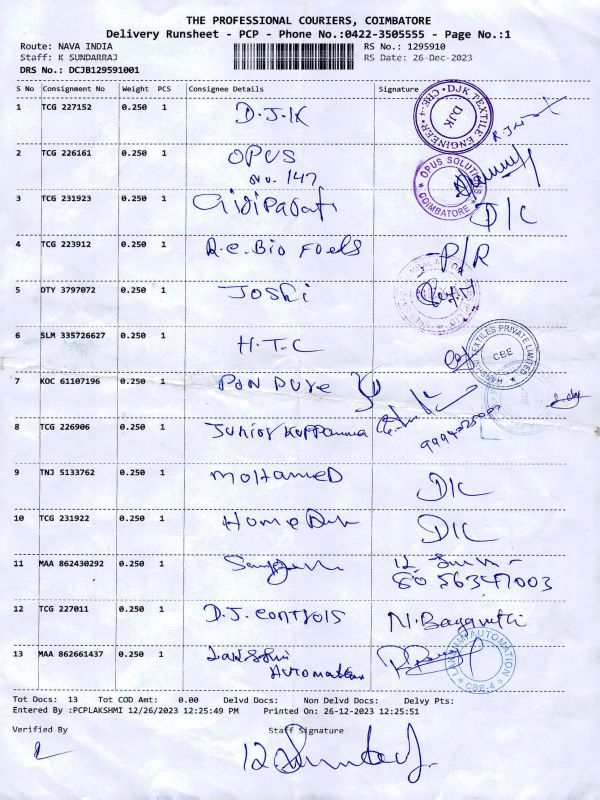 THE PROFESSIONAL COURIERS, COIMBATORE
Delivery Runsheet - PCP - Phone No.:0422-3505555 - Page No.:1
Route: NAVA INDIA RS No.: 1295910
Staff: K SUNDARRAJ RS Date: 26-Dec-2023
DRS No.: DCJB129591001
S No Consignment No Weight PCS Consignee Details Signature
1 TCG 227152 0.250 1 D.J.K
DJK TEXTILE ENGINEER CBE-4
DJK
2 TCG 226161 0.250 1 OPUS
no. 147
OPUS SOLUTIONS
COIMBATORE
3 TCG 231923 0.250 1 D/C
4 TCG 223912 0.250 1 R.C. Bio Fuels P/R
5 OTY 3797072 0.250 1 Joshi
6 SLM 335726627 0.250 1 H.T.C
TEXTILES PRIVATE LIMITED
CBE
7 KOC 61107196 0.250 1 PAN Pure
8 TCG 226906 0.250 1 Junior Kuppanna
9 TNJ 5133762 0.250 1 Mohamed D/C
10 TCG 231922 0.250 1 D/C
11 MAA 862430292 0.250 1
12 TCG 227011 0.250 1 D.J. Controls
13 MAA 862661437 0.250 1 Lakshmi
Automation
LAKSHMI AUTOMATION
CBE-4
Tot Docs: 13 Tot COD Amt: 0.00 Delvd Docs: Non Delvd Docs: Delvy Pts:
Entered By :PCPLAKSHMI 12/26/2023 12:25:49 PM Printed On: 26-12-2023 12:25:51
Verified By Staff Signature